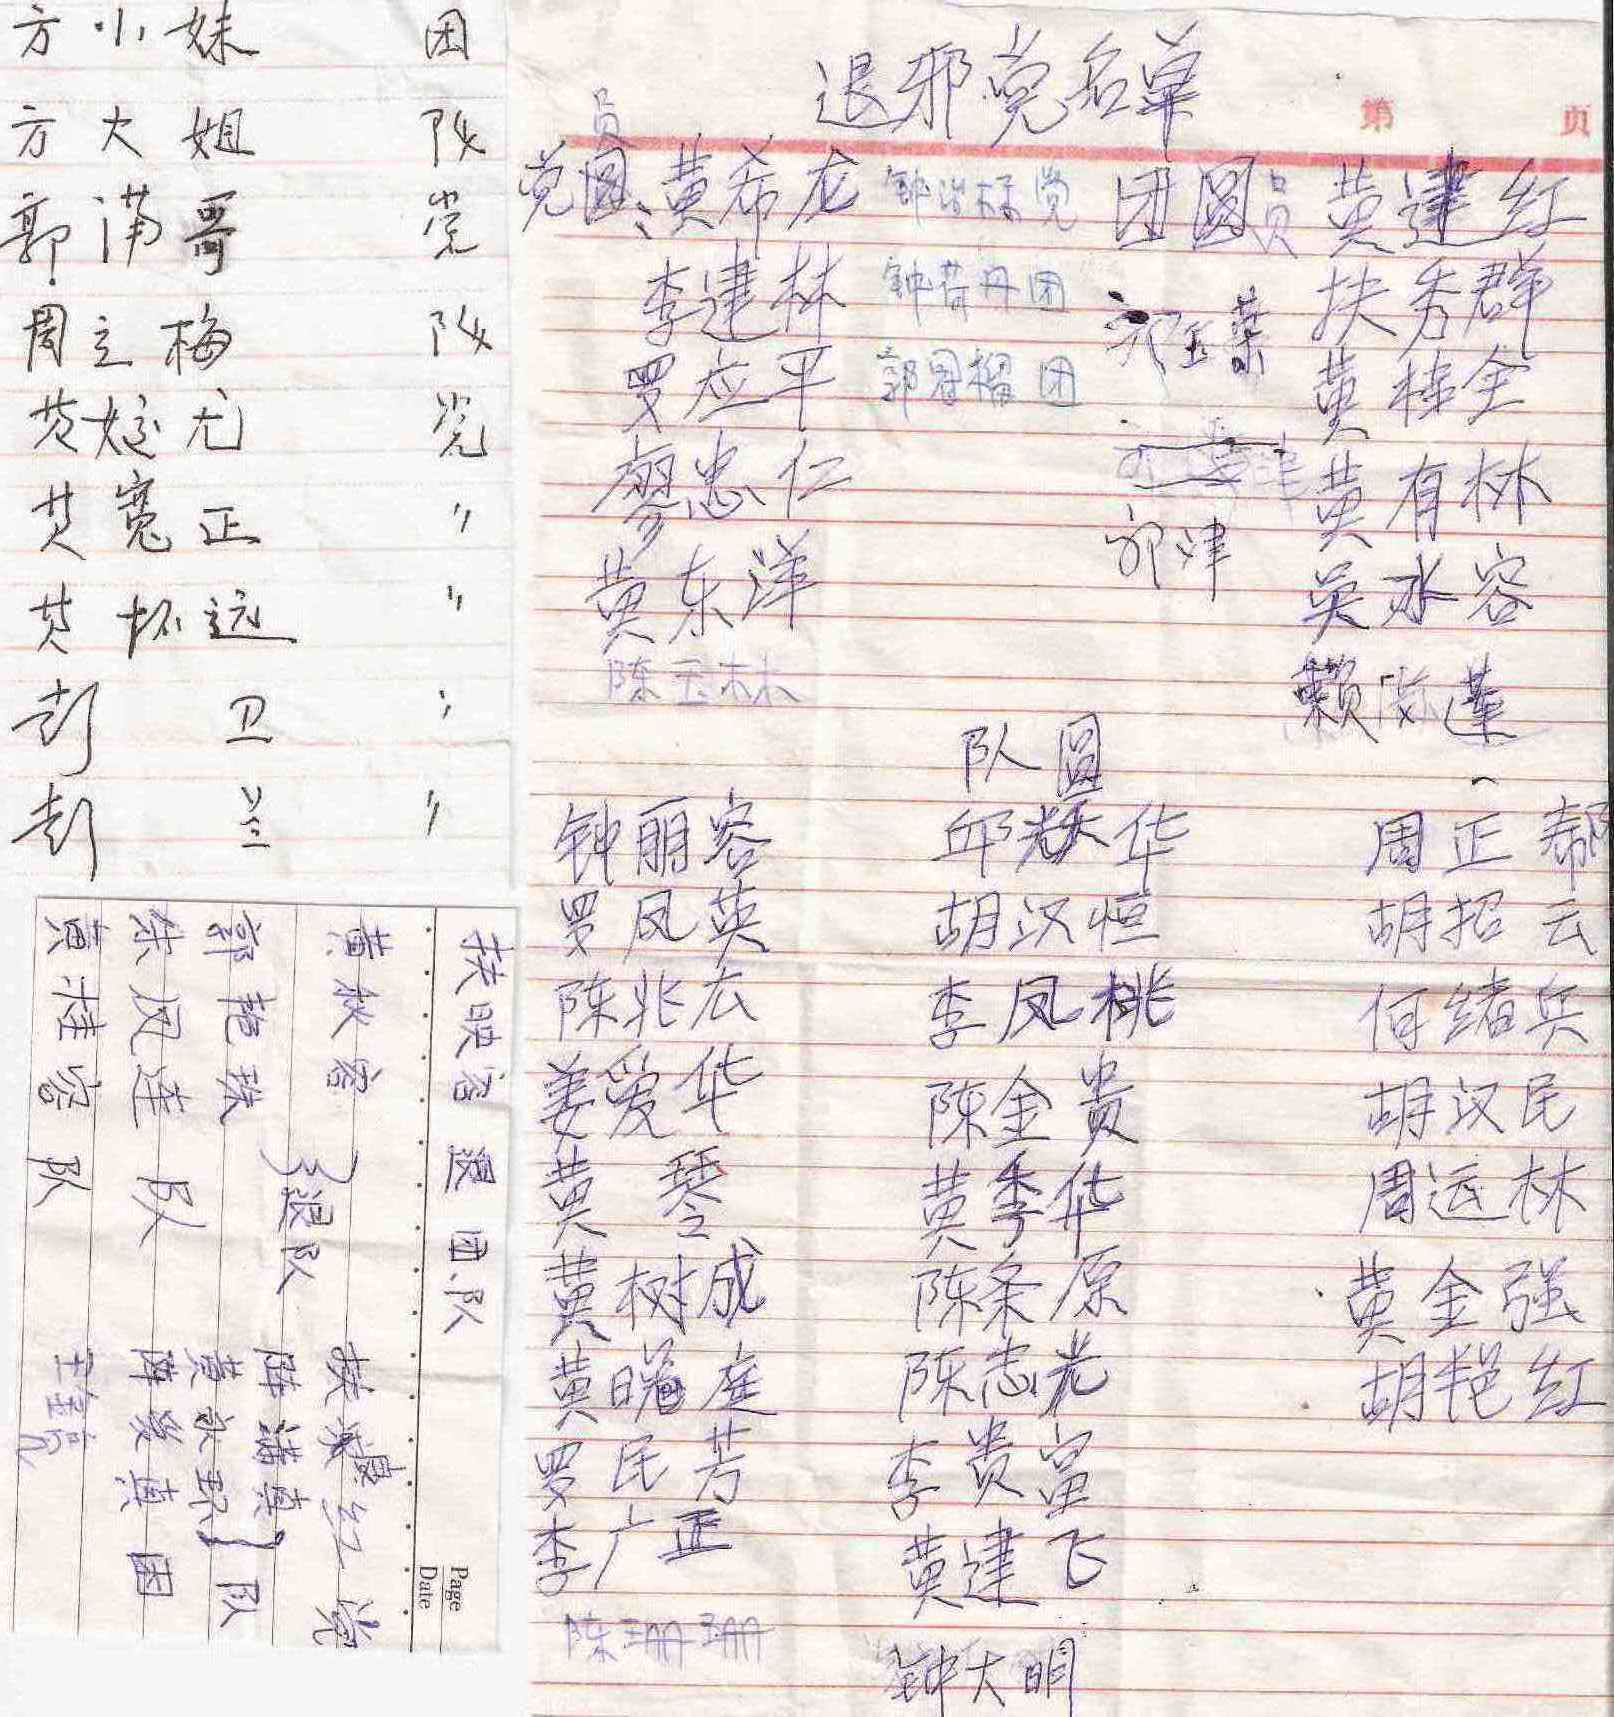 方小妹 团
方大姐 队
郭满哥 党
周立梅 队
党
黄宽正 〃
黄怀远 〃
彭卫 〃
彭兰 〃
扶映容 退 团.队
黄秋容
郭艳 退队
徐风连 队
黄桂容 队
红 党
陆满真
黄永 队
陆爱真 团
Page
Date
第 页
退邪党名单
员
党圆:黄希龙
李建林
罗应平
廖忠仁
黄东洋
陈玉林
党
团
团
团圆员
郭津
黄建红
扶秀群
黄桂金
黄有林
吴水容
赖 莲
队圆
钟丽容 邱 华 周正帮
罗凤英 胡汉恒 胡招云
陈兆広 李凤桃 何绪兵
姜爱华 陈金贵 胡汉民
黄琴 黄季华 周运林
黄树成 陈条原 黄金强
黄 庭 陈志光 胡艳红
罗民芳 李贵富
李广正 黄建飞
陈珊珊 钟大明